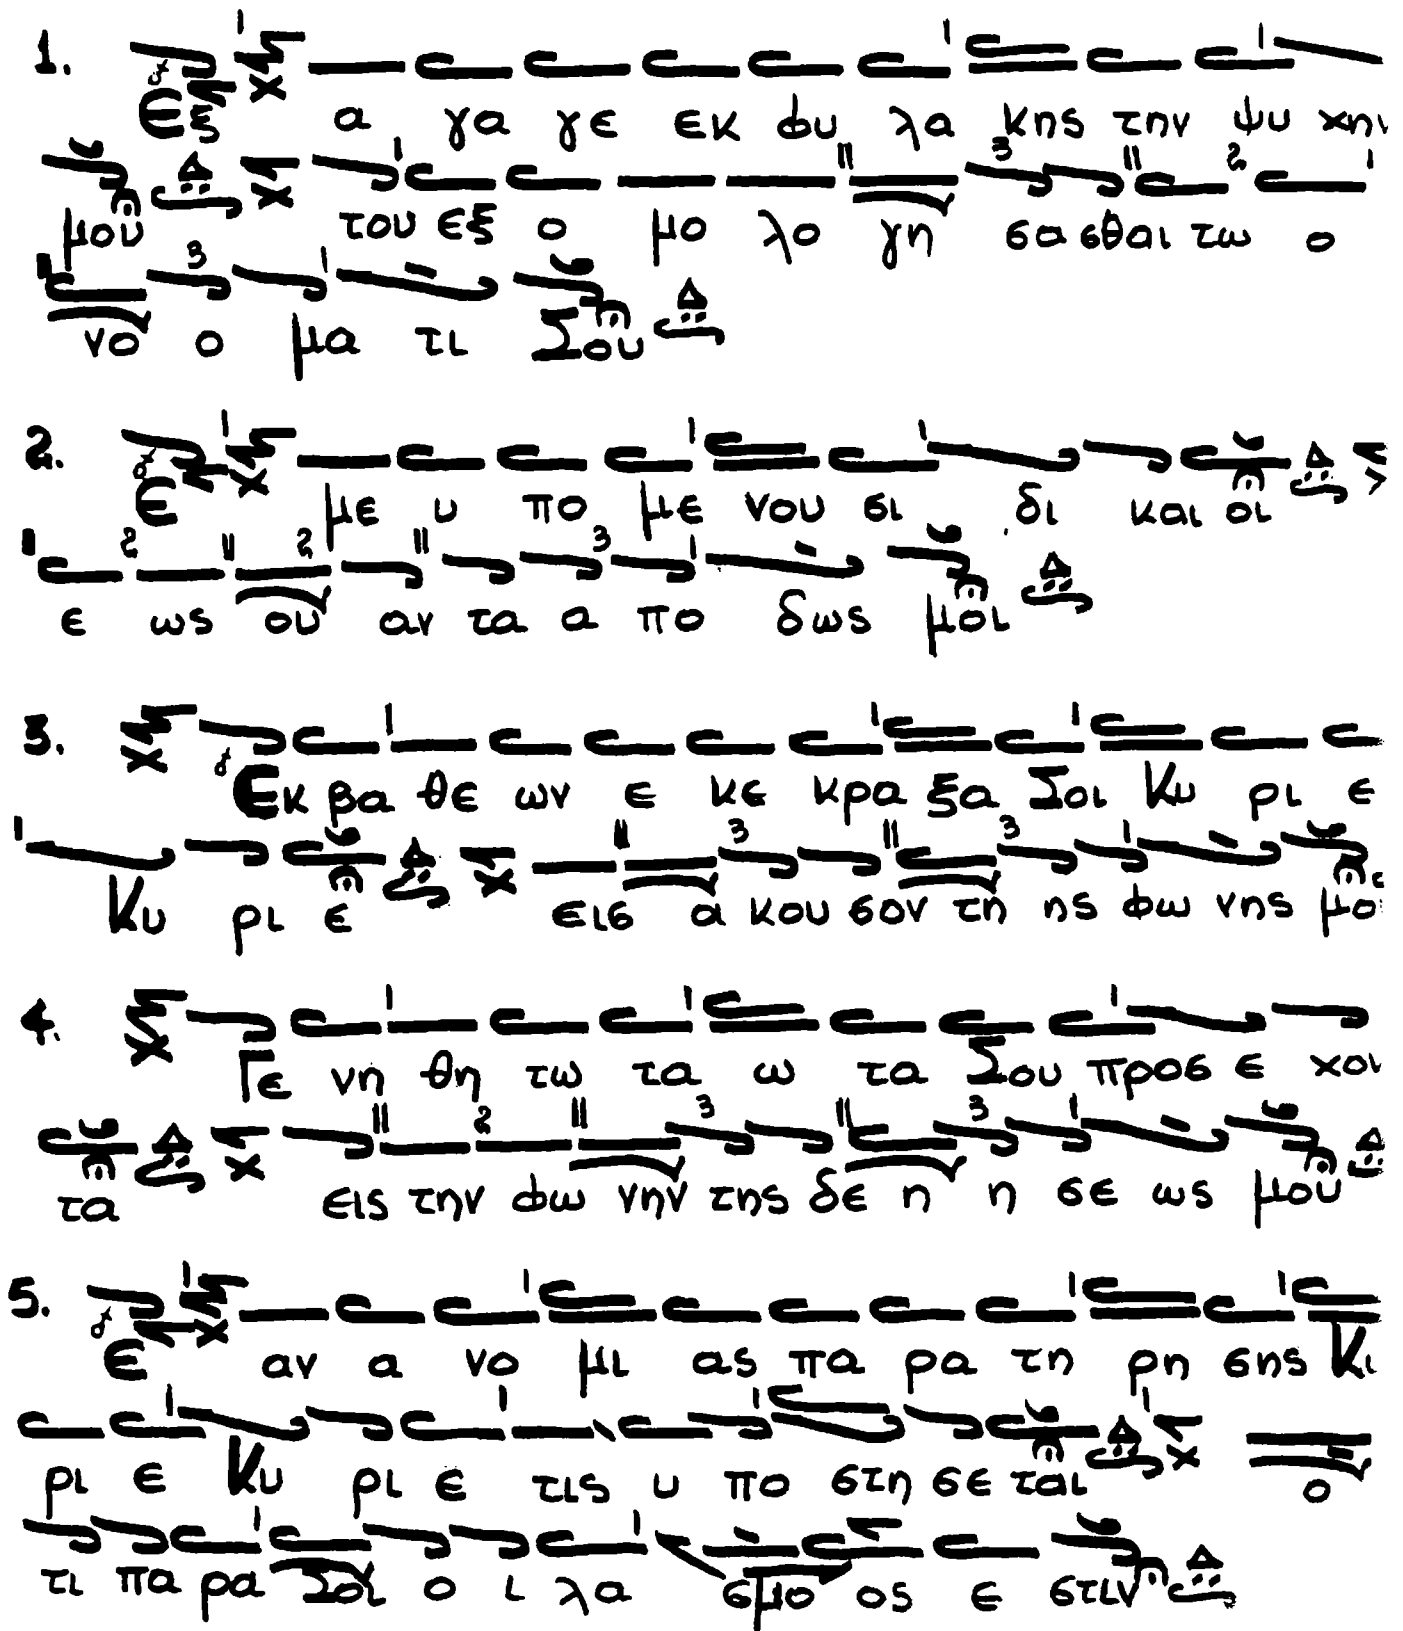 1. Εξ α γα γε εκ φυ λα κης την ψυ χην
μου του εξ ο μο λο γη σα σθαι τω ο
νο ο μα τι Σου
2. Ε με υ πο με νου σι δι και οι
ε ως ου αν τα α πο δως μοι
3. Εκ βα θε ων ε κε κρα ξα Σοι Κυ ρι ε
Κυ ρι ε εισ α κου σον τη ης φω νης μο
4. Γε νη θη τω τα ω τα Σου προσ ε χον
τα εις την φω νην της δε η η σε ως μου
5. Ε αν α νο μι ας πα ρα τη ρη σης Κυ
ρι ε Κυ ρι ε τις υ πο στη σε ται ο
τι πα ρα Σοι ο ι λα σμο ος ε στιν